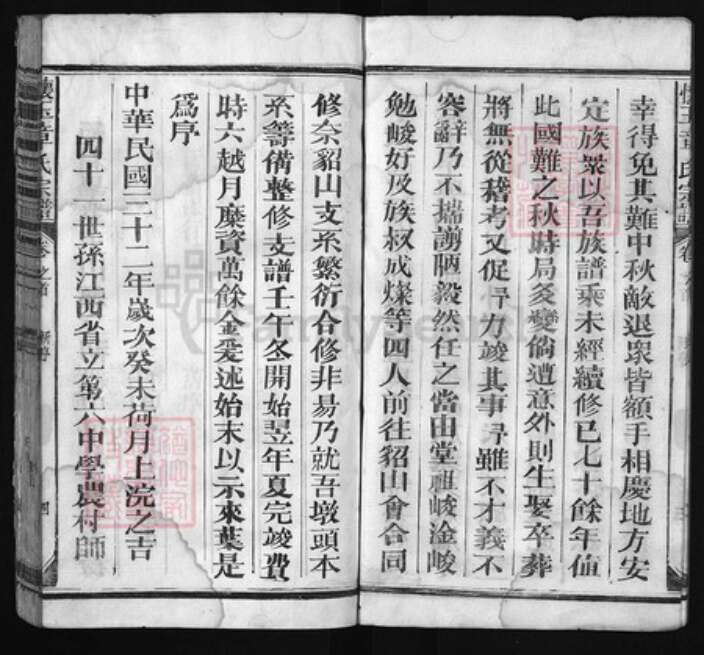 幸得免其難中秋敵退眾皆額手相慶地方安
定族眾以吾族譜乘未經續修已七十餘年值
此國難之秋時局多變倘遭意外則生娶卒葬
將無從稽考又促予力竣其事予雖不才義不
容辭乃不揣謭陋毅然任之當由堂祖峻淦峻
勉峻好及族叔成燦等四人前往貂山會合同
修奈貂山支系繁衍合修非易乃就吾墩頭本
系籌備整修支譜壬午冬開始翌年夏完竣費
時六越月糜資萬餘金爰述始末以示來葉是
為序
中華民國三十二年歲次癸未荷月上浣之吉
四十一世孫江西省立第六中學農村師
懷玉章氏宗譜 卷之首 四